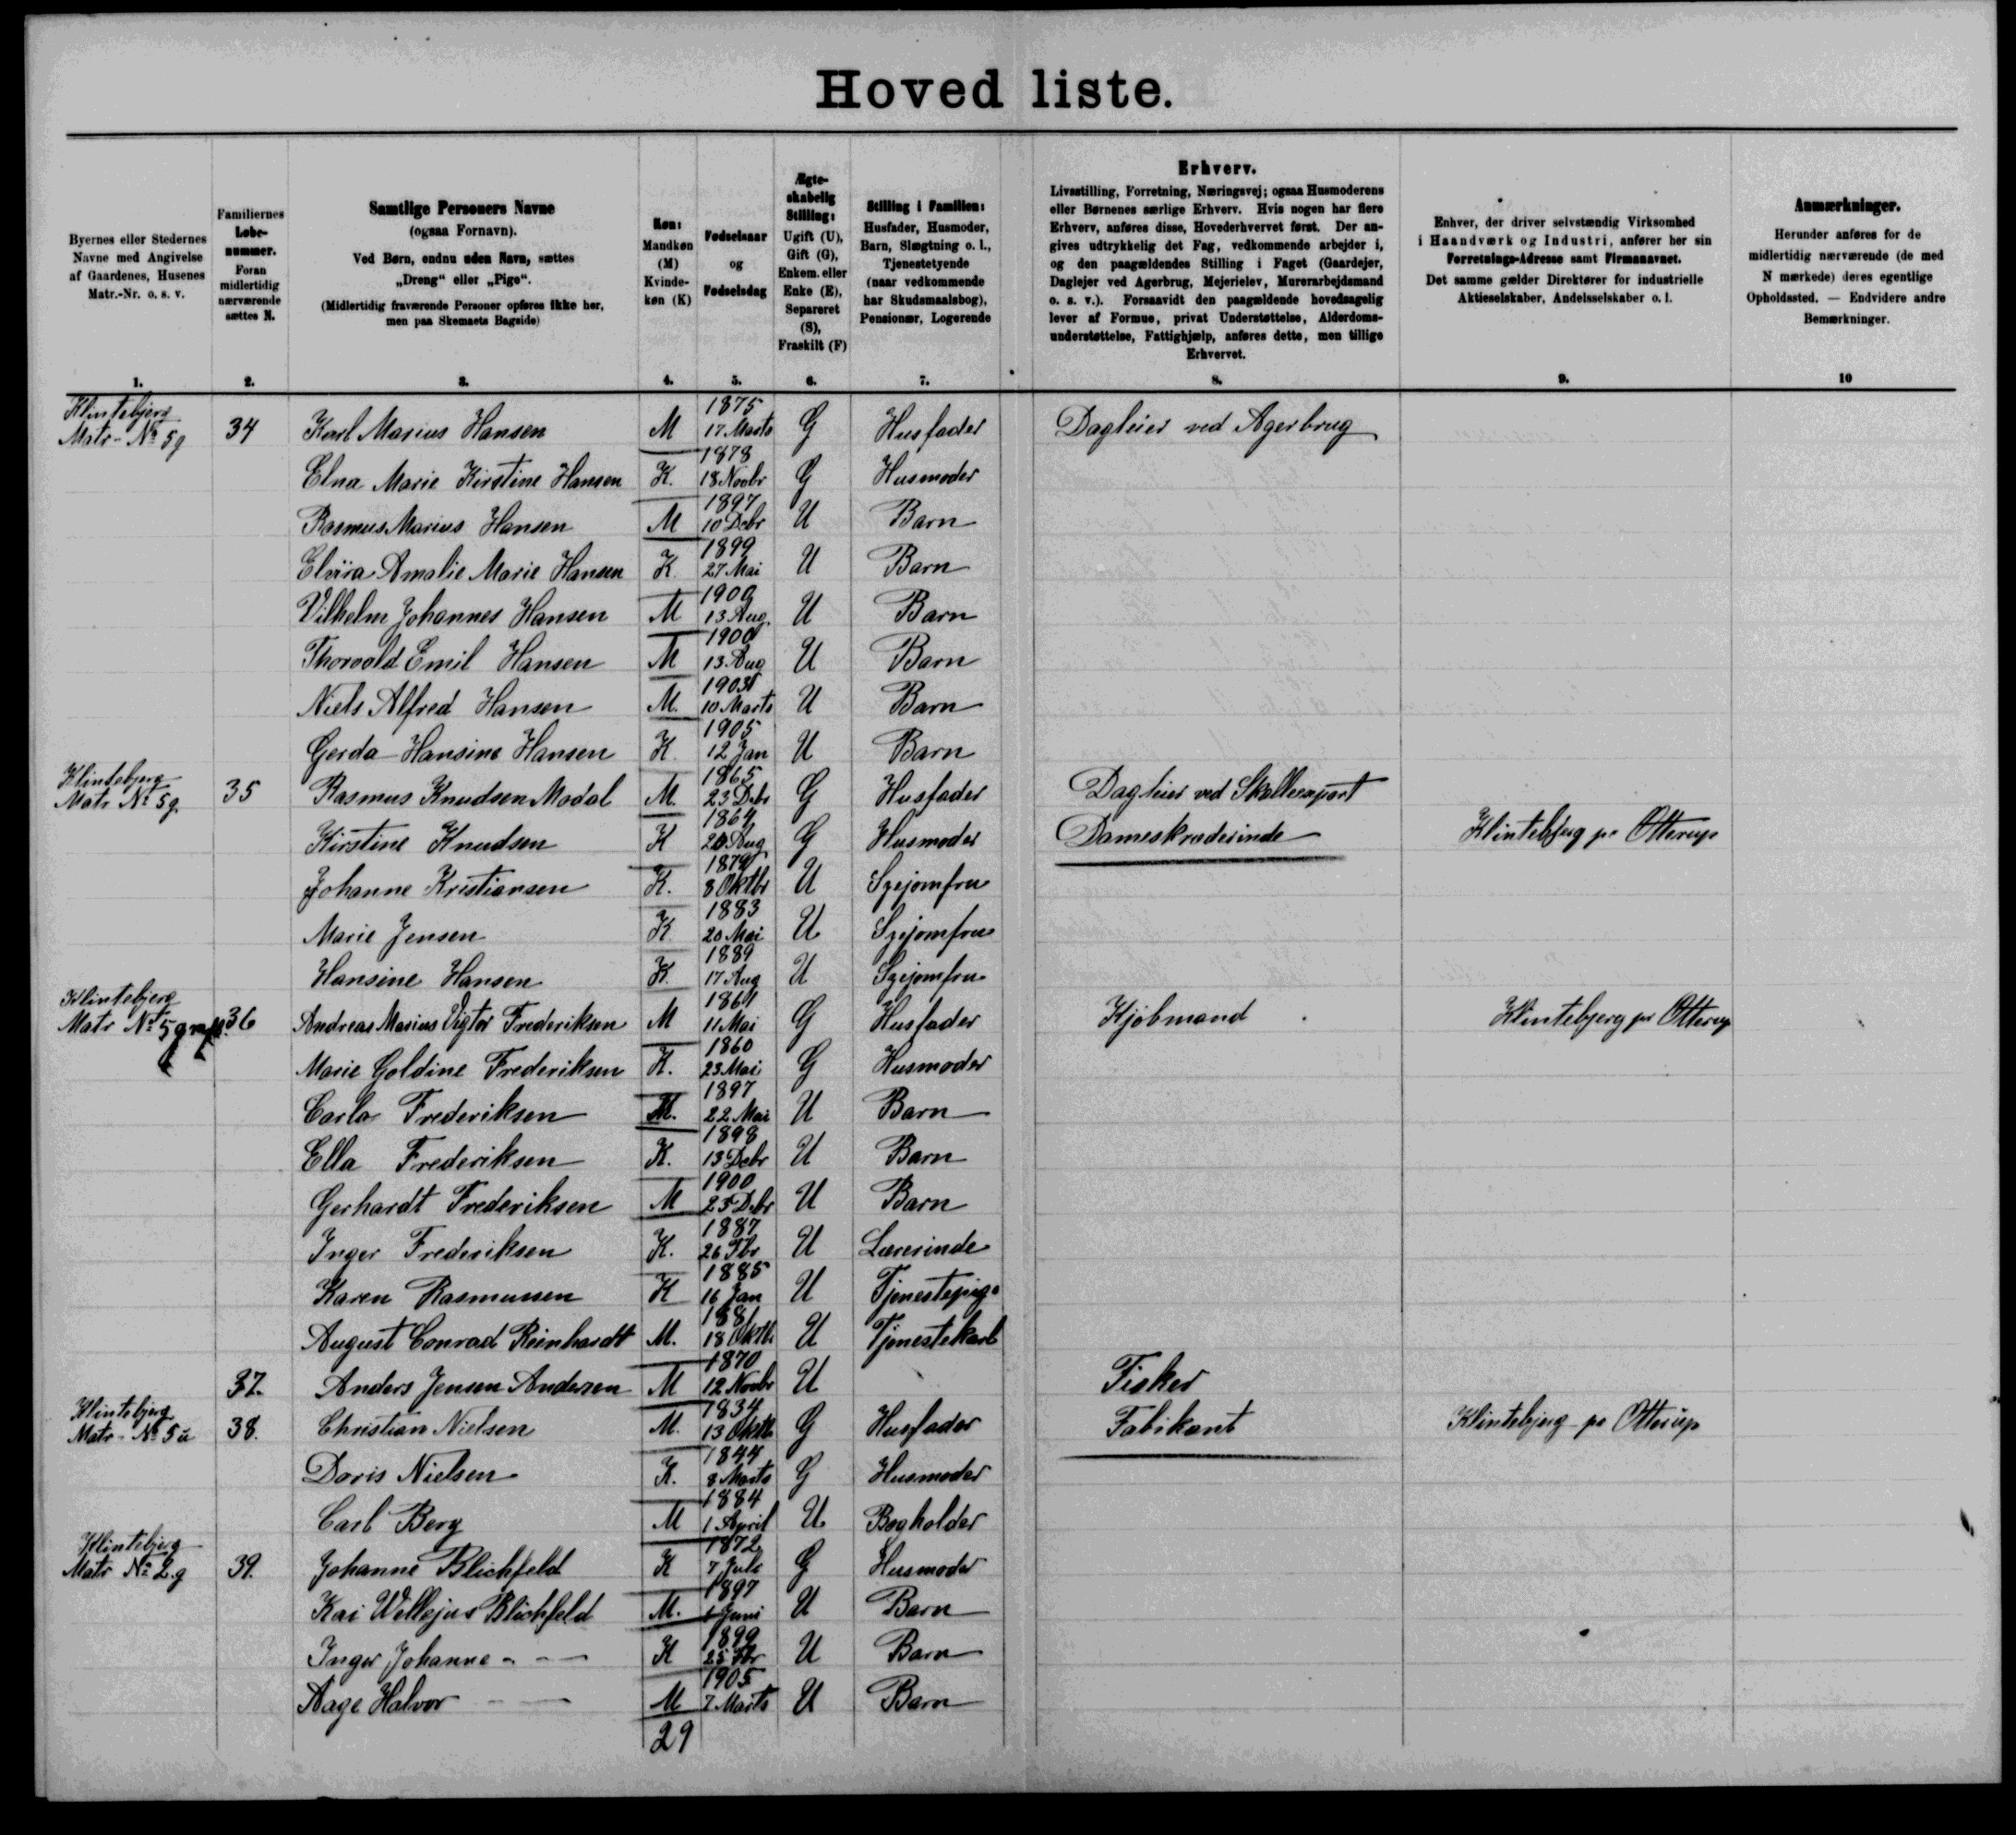 Hoved liste.
Byernes eller Stedernes
Navne med Angivelse
af Gaardenes, Husenes
Matr.-Nr. o. s. v.
Familiernes
Løbe-
nummer.
Foran
midlertidig
nærværende
sættes N.
Samtlige Personers Navne
(ogsaa Fornavn).
Ved Børn, endnu uden Navn, sættes
„Dreng“ eller „Pige“.
(Midlertidig fraværende Personer opføres ikke her,
men paa Skemaets Bagside)
Køn:
Mandkøn
(M)
Kvinde-
køn (K)
Fødselsaar
og
Fødselsdag
Ægte-
skabelig
Stilling:
Ugift (U),
Gift (G),
Enkem. eller
Enke (E),
Separeret
(S),
Fraskilt (F)
Stilling i Familien:
Husfader, Husmoder,
Barn, Slægtning o. l.,
Tjenestetyende
(naar vedkommende
har Skudsmaalsbog),
Pensionær, Logerende
Erhverv.
Livsstilling, Forretning, Næringsvej; ogsaa Husmoderens
eller Børnenes særlige Erhverv. Hvis nogen har flere
Erhverv, anføres disse, Hovederhvervet først. Der an-
gives udtrykkelig det Fag, vedkommende arbejder i,
og den paagældendes Stilling i Faget (Gaardejer,
Daglejer ved Agerbrug, Mejerielev, Murerarbejdsmand
o. s. v.). Forsaavidt den paagældende hovedsagelig
lever af Formue, privat Understøttelse, Alderdoms-
understøttelse, Fattighjælp, anføres dette, men tillige
Erhvervet.
Enhver, der driver selvstændig Virksomhed
i Haandværk og Industri, anfører her sin
Forretnings-Adresse samt Firmanavnet.
Det samme gælder Direktører for industrielle
Aktieselskaber, Andelsselskaber o. l.
Anmærkninger.
Herunder anføres for de
midlertidig nærværende (de med
N mærkede) deres egentlige
Opholdssted. — Endvidere andre
Bemærkninger.
1. 2. 3. 4. 5. 6. 7. 8. 9. 10
Klintebjerg 1875
Matr-№ 5g 34 Karl Marius Hansen M 17 Marts G Husfader Dagleier ved Agerbrug
1878
Elna Marie Kirstine Hansen K. 18 Novbr G Husmoder
1897
Rasmus Marius Hansen M 10 Debr U Barn
1899
Elvira Amalie Marie Hansen K. 27 Mai U Barn
1900
Vilhelm Johannes Hansen M 13 Aug. U Barn
1900
Thorvald Emil Hansen M 13 Aug U Barn
1903
Niels Alfred Hansen M. 10 Marts U Barn
1905
Gerda Hansine Hansen K. 12 Jan U Barn
Klintebjerg 1865
Matr № 5g. 35 Rasmus Knudsen Modal M. 23 Debr G Husfader Dagleier ved
1864
Kirstine Knudsen K 20 Aug G Husmoder Dameskræderinde Klintebjerg pr Otterup
1879
Johanne Kristiansen K. 8 Oktbr U Syejomfru
1883
Marie Jensen K 20 Mai U Syejomfru
1889
Hansine Hansen K. 17 Aug U Syejomfru
Klintebjerg 1861
Matr № 5g 36 Andreas Marius Vigtor Frederiksen M 11 Mai G Husfader Kjøbmand Klintebjerg pr Otterup
1860
Marie Goldine Frederiksen K. 23 Mai G Husmoder
1897
Carlo Frederiksen M. 22 Mai U Barn
1898
Ella Frederiksen K. 13 Debr U Barn
1900
Gerhardt Frederiksen M 25 Debr U Barn
1887
Inger Frederiksen K. 26 Fbr U Lærerinde
1885
Karen Rasmussen K 16 Jan U Tjenestepige
1881
August Conrad Reinhardt M. 18 Oktb U Tjenestekarl
1870
37. Anders Jensen Andersen M 12 Novbr U Fisker
Klintebjerg 1834
Matr-№ 5u 38. Christian Nielsen M. 13 Oktb G Husfader Fabikant Klintebjerg pr Otterup
1844
Doris Nielsen K. 8 Marts G Husmoder
1884
Carl Berg M 1 April U Bogholder
Klintebjerg 1872
Matr № 2g 39. Johanne Blichfeld K 7 Juli G Husmoder
1897
Kai Wellejus Blichfeld M. 1 Juni U Barn
1899
Inger Johanne - - — K 25 Fbr U Barn
1905
Aage Halvor - — M 7 Marts U Barn
29